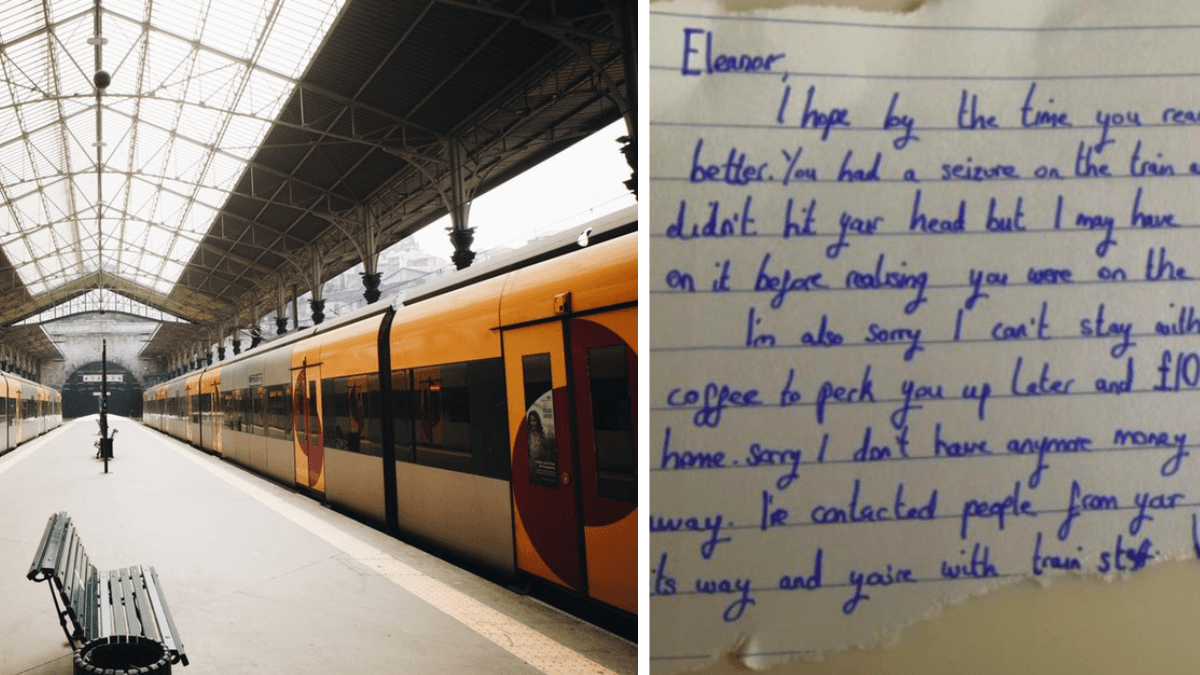 Eleanor,
I hope by the time you rea
better. You had a seizure on the train a
didn't hit your head but I may have
on it before realising you were on the
I'm also sorry I can't stay with
coffee to perk you up later and £10
home. Sorry I don't have anymore money
away. I've contacted people from your
its way and you're with train staff.